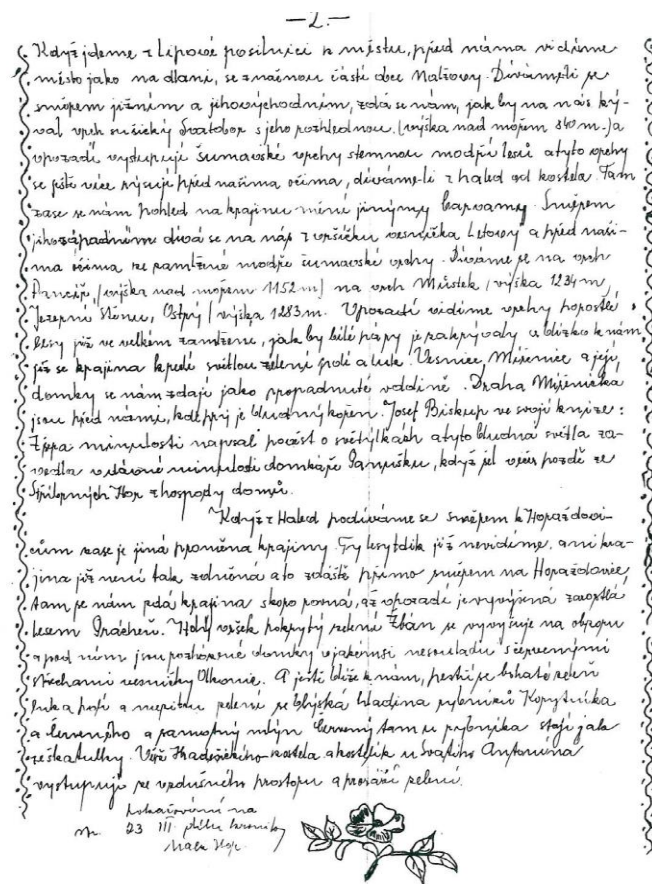 —2.—
Když jdeme z Lipové posilnici k městu, před náma vidíme
město jako na dlani, se značnou částí obce Nalžovy. Díváme-li se
směrem jižním a jihovýchodním, zdá se nám, jak by na nás ký-
val vrch sušický Svatobor s jeho rozhlednou. (výška nad mořem 840 m.) a
vpozadí vystupují šumavské vrchy stemnou modří lesů a tyto vrchy
se ještě více rýsují před našima očima, díváme-li z halad od kostela. Tam
zase se nám pohled na krajinu mění jinými barvami. Směrem
jihozápadním dívá se na nás z vršíčku vesnička Letovy a před naši-
ma očima ze zamlžené modře šumavské vrchy. Díváme se na vrch
Pancíř, (výška nad mořem 1152 m) na vrch Můstek / výška 1234 m,
Jezerní Stěnu, Ostrý / výška 1283 m. Vpozadí vidíme vrchy porostlé
lesy již ve velkém zamlžení, jak by bílé páry je zakrývaly a blízko k nám
již se krajina kpedě světlou zelení polí a luk. Vesnice, Miřenice a její
domky se nám zdají jako propadnuté vdolině. Draha Miřenička
jsou před námi, kde prý je bludný kořen. Josef Biskup ve svojí knize:
Z šera minulosti napsal pověst o světýlkách a tyto bludná světla za-
vedla v dávné minulosti domkáře Panušku, když šel večer pozdě ze
Stříbrných Hor z hospody domů.
Když z Halad podíváme se směrem k Horažďovi-
cům zase je jiná proměna krajiny. Ty lesy tolik již nevidíme, ani kra-
jina již není tak zvlněná a to zvláště přímo směrem na Horažďovice,
tam se nám zdá krajina skoro rovná, až vpozadí je vyvýšená zarostlá
lesem Prácheň. Holý vršek pokrytý zelení Žbán se vyvyšuje na obzoru
a pod ním jsou domky v jakémsi nesouladu s červenými
střechami vesničky Olkonic. A ještě blíže k nám, pestří se bohatá zeleň
luk a polí a uprostřed zeleni se blýská hladina rybníků Kopytníka
a Červeného a samotný mlýn Červený tam u rybníka stojí jak
ze škatulky. Věž Hradešického kostela a kostelík u Svatého Antonína
vystupují ze vzdušného prostoru a prosáří zelení.
Pokračování na
str. 23 III. dílu kroniky
Hor